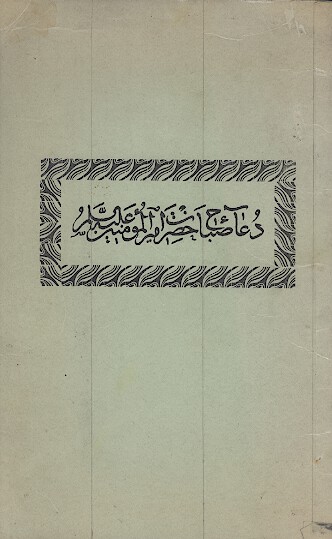 دعاء صباح حضرت امیرالمؤمنین علیه السلام